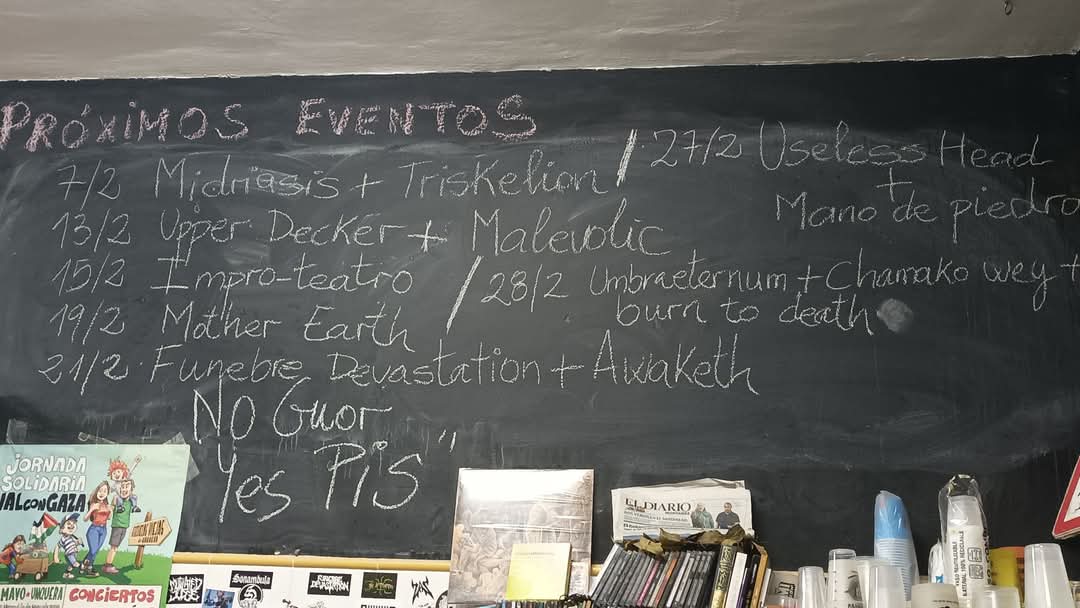 PRÓXIMOS EVENTOS
7/2 Midriasis + Triskelion
13/2 Upper Decker + Malevolic
15/2 Impro-teatro
19/2 Mother Earth
21/2 Funebre Devastation + Awaketh
/ 27/2 Useless Head
+
Mano de piedra
/ 28/2 Umbraeternum + Chamako wey +
burn to death
No Guor
Yes PiS "
JORNADA
SOLIDARIA
VAL CON GAZA
MAYO · UNQUERA
CONCIERTOS
EL DIARIO
Sonambula
FUNEBRE
DEVASTATION